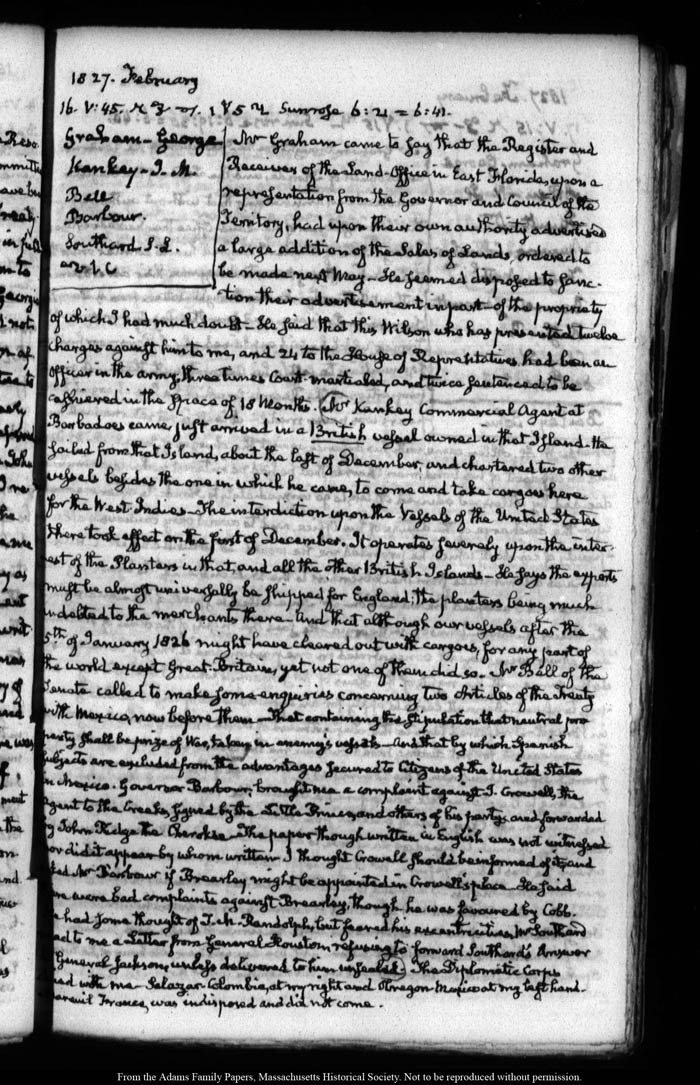 1827. February
16. V:45. Sunrose 6:21 = 6:41.
Graham-George
Kankey-I. M.
Bell
Barbour.
Southard S. L.
Mr Graham came to say that the Register and
Receiver of the Land-Office in East Florida, upon a
representation from the Governor and Council of the
Territory, had upon their own authority advertised
a large addition of the Sales of Lands, ordered to
be made next May_ He seemed disposed to sanc-
tion their advertisement in part_ of the propriety
of which I had much doubt_ He said that this Wilson who has presented twelve
charges against him to me, and 24 to the House of Representatives, had been an
Officer in the army, three times Court-martialed, and twice sentenced to be
cashiered in the space of 18 Months. Mr Kankey Commercial Agent at
Barbadoes came, just arrived in a British vessel owned in that Island_ He
sailed from that Island, about the last of December, and chartered two other
vessels besides the one in which he came, to come and take cargoes here
for the West-Indies_ The interdiction upon the Vessels of the United States
there took effect on the first of December. It operates severely upon the inter-
est of the Planters in that, and all the other British Islands_ He says the exports
must be almost universally be shipped for England; the planters being much
indebted to the merchants there_ And that although our vessels after the
5th of January 1826 might have cleared out with cargoes, for any part of
the world except Great-Britain, yet not one of them did so_ Mr Bell of the
Senate called to make some enquiries concerning two Articles of the Treaty
with Mexico, now before them_ That containing the stipulation that neutral pro
perty shall be prize of War, taken in enemy's vessels_ And that by which Spanish
subjects are excluded from the advantages secured to Citizens of the United States
in Mexico. Governor Barbour, brought me a complaint against J. Crowell, the
Agent to the Creeks, signed by the Little Prince, and others of his party, and forwarded
by John Ridge the Cherokee_ The paper though written in English was not witnessed
nor did it appear by whom written_ I thought Crowell should be informed of it, and
asked Mr Barbour if Brearley might be appointed in Crowell's place_ He said
were bad complaints against Brearley, though he was favoured by Cobb.
had some thought of T. M. Randolph, but feared his excentricities. Mr Southard
to me a Letter from General Houston refusing to forward Southard's Answer
General Jackson, unless delivered to him unsealed. The Diplomatic Corps
with me_ Salazar-Colombia, at my right and Obregon-Mexico at my left hand_
Mareuil France, was indisposed and did not come.
From the Adams Family Papers, Massachusetts Historical Society. Not to be reproduced without permission.